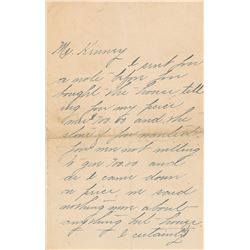 Mr. Kinney
I sent you
a note before you
bought the house, tell
ing you my price
was 70.00 and the
store if you wanted
you nor not willing
to give 70.00 and
I came down
in price, we said
nothing more about
anything the house
I certainly